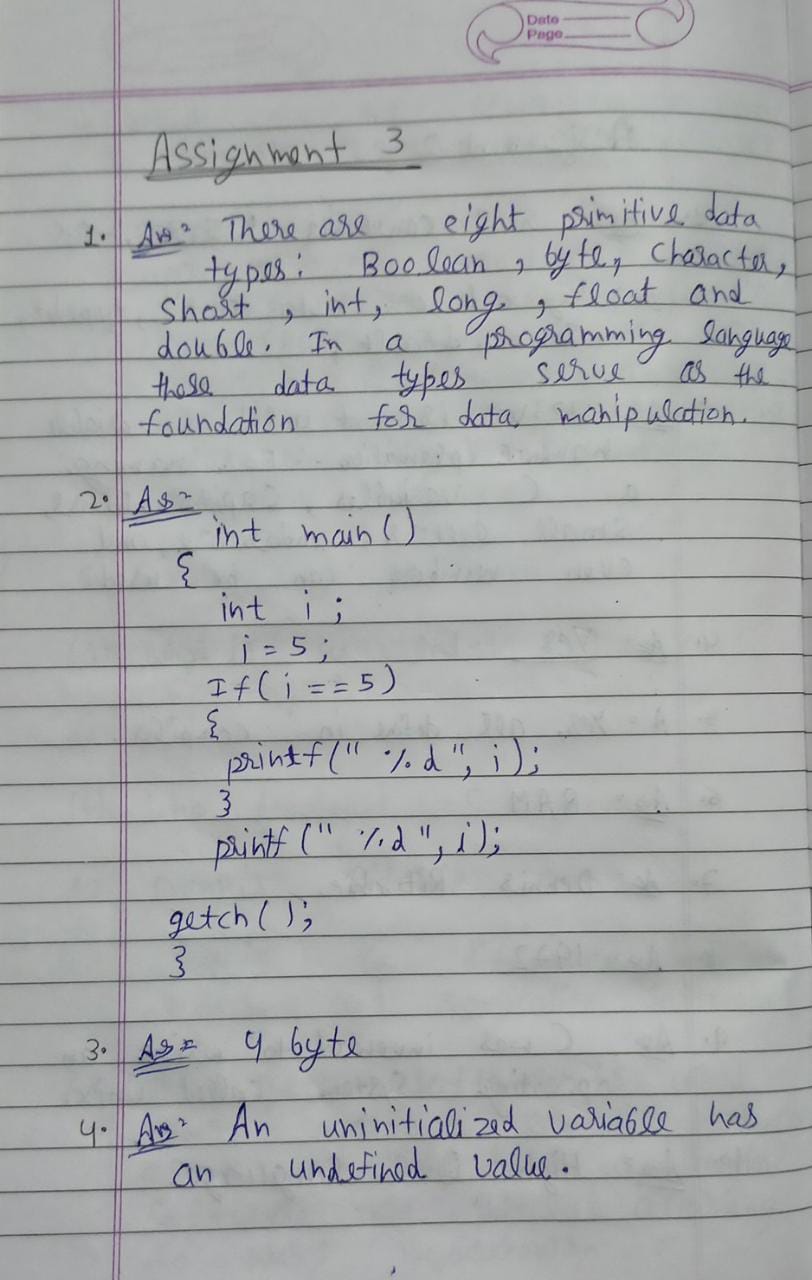 Date
Page
Assignment 3
1. Ans= There are eight primitive data
types: Boolean, byte, character,
short, int, long, float and
double. In a programming language
these data types serve as the
foundation for data manipulation.
2. As=
int main()
{
int i;
i = 5;
If( i == 5)
{
printf(" %d", i);
}
printf (" %d", i);
getch( );
}
3. As= 4 byte
4. Ans= An uninitialized variable has
an undefined value.